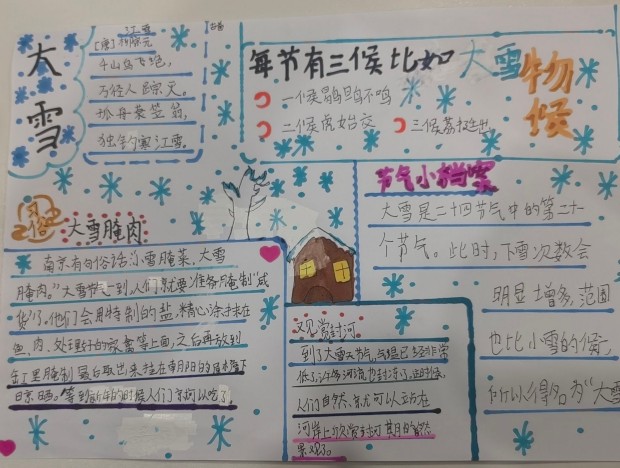 大雪
江雪
[唐]柳宗元
千山鸟飞绝,
万径人踪灭。
孤舟蓑笠翁,
独钓寒江雪。
每节有三候比如大雪物候
一候鹖鴠不鸣
二候虎始交
三候荔挺出
节气小档案
大雪是二十四节气中的第二十一
个节气。此时,下雪次数会
明显增多,范围
也比小雪的候,
所以得名为“大雪
俗
大雪腌肉
南京有句俗话:小雪腌菜,大雪
腌肉。”大雪节气一到人们就要准备腌制“咸
货”了。他们会用特制的盐,精心涂抹在
鱼、肉、处理好的家禽等上面,之后再放到
缸里腌制 最后取出来挂在朝阳的
日京晒。等到新年的时候人们京可以吃了
观赏封河
到了大雪节气,气温已经非常
低了,许多河流也封冻了,这时候,
人们自然,京尤可以立占在
河岸上欣赏封河 其月的自然
景观了。